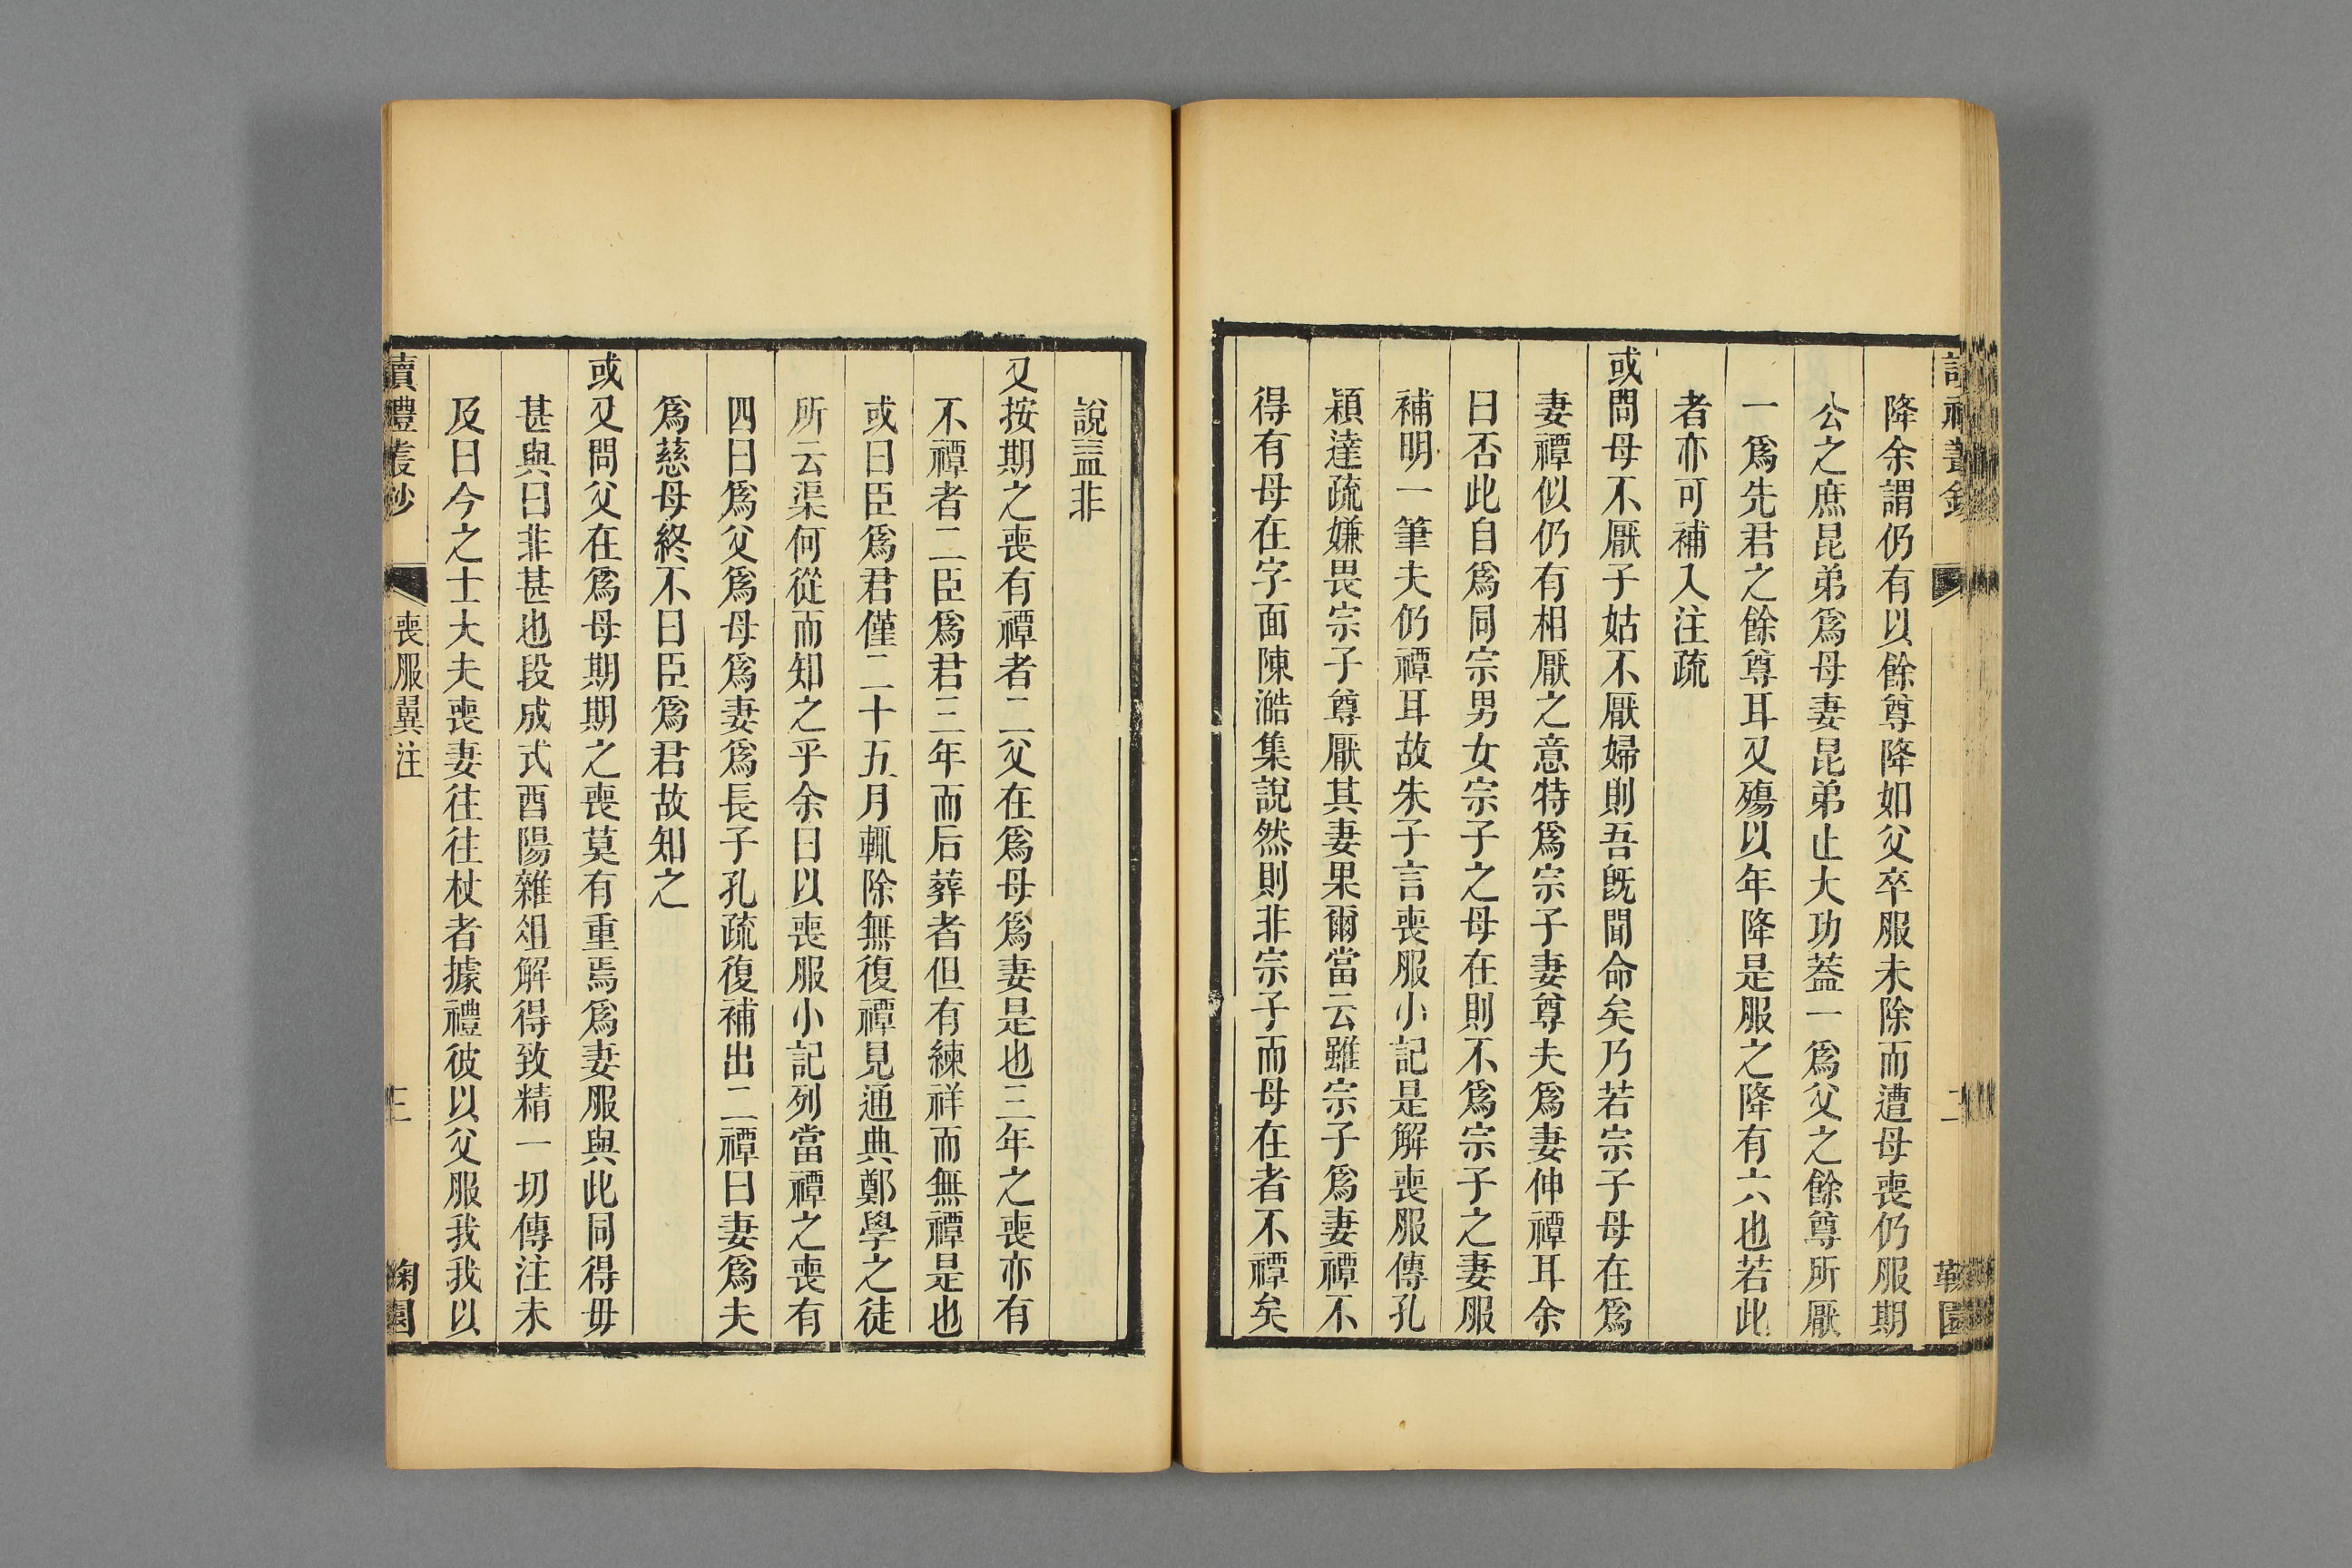 降余謂仍有以餘尊降如父卒服未除而遭母喪仍服期
公之庶昆弟爲母妻昆弟止大功葢一爲父之餘尊所厭
一爲先君之餘尊耳又殤以年降是服之降有六也若此
者亦可補入注疏
或問母不厭子姑不厭婦則吾旣聞命矣乃若宗子母在爲
妻禫似仍有相厭之意特爲宗子妻尊夫爲妻伸禫耳余
曰否此自爲同宗男女宗子之母在則不爲宗子之妻服
補明一筆夫仍禫耳故朱子言喪服小記是解喪服傳孔
穎達疏嫌畏宗子尊厭其妻果爾當云雖宗子爲妻禫不
得有母在字面陳澔集說然則非宗子而母在者不禫矣
說盖非
又按期之喪有禫者二父在爲母爲妻是也三年之喪亦有
不禫者二臣爲君三年而后葬者但有練祥而無禫是也
或曰臣爲君僅二十五月輒除無復禫見通典鄭學之徒
所云渠何從而知之乎余曰以喪服小記列當禫之喪有
四曰爲父爲母爲妻爲長子孔疏復補出二禫曰妻爲夫
爲慈母終不曰臣爲君故知之
或又問父在爲母期期之喪莫有重焉爲妻服與此同得毋
甚與曰非甚也段成式酉陽雜俎解得致精一切傳注未
及曰今之士大夫喪妻往往杖者據禮彼以父服我我以
讀禮叢鈔
喪服翼注
三
鞠園